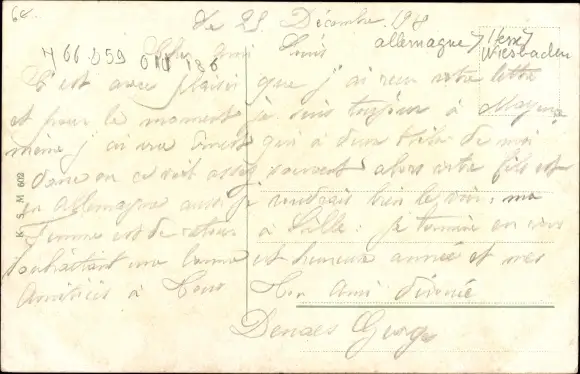 64
le 28 Décembre 1918
allemagne / Hesse / Wiesbaden
466 059 011 186
Cher ami Louis
C'est avec plaisir que j'ai reçu votre lettre
et pour le moment je suis toujours à Mayence
même j'ai vue qui à deux de moi
donc on ce voit assez souvent alors votre fils est
en allemagne aussi je voudrais bien le voir, ma
femme est de retour à Lille : je termine en vous
souhaitant une bonne et heureuse année et mes
Amitiés à tous Ton ami dévoué
Denaes Georges
K. S. M 602